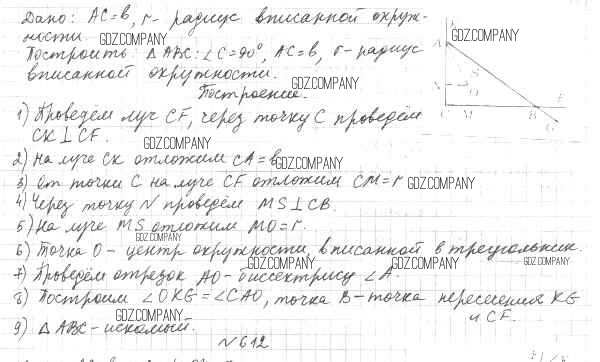 Дано: AC=b, r- радиус вписанной окруж-
ности GDZ.COMPANY
GDZ.COMPANY
Построить: △ABC: ∠C=90°, AC=b, r-радиус
вписанной окружности. GDZ.COMPANY
Построение.
1) Проведём луч CF, через точку C проведём
CK⊥CF. GDZ.COMPANY
2) На луче CK отложим CA=b GDZ.COMPANY
3) От точки C на луче CF отложим CM=r GDZ.COMPANY
4) Через точку N проведём MS⊥CB.
5) На луче MS отложим MO=r.
GDZ.COMPANY
6) Точка O- центр окружности, вписанной в треугольник.
GDZ.COMPANY GDZ.COMPANY GDZ.COMPANY
7) Проведём отрезок AO-биссектрису ∠A.
8) Построим ∠OKG=∠CAO, точка B-точка пересечения KG
и CF.
GDZ.COMPANY
9) △ABC-искомый.
N612
A
S
N
O
C M B F
G